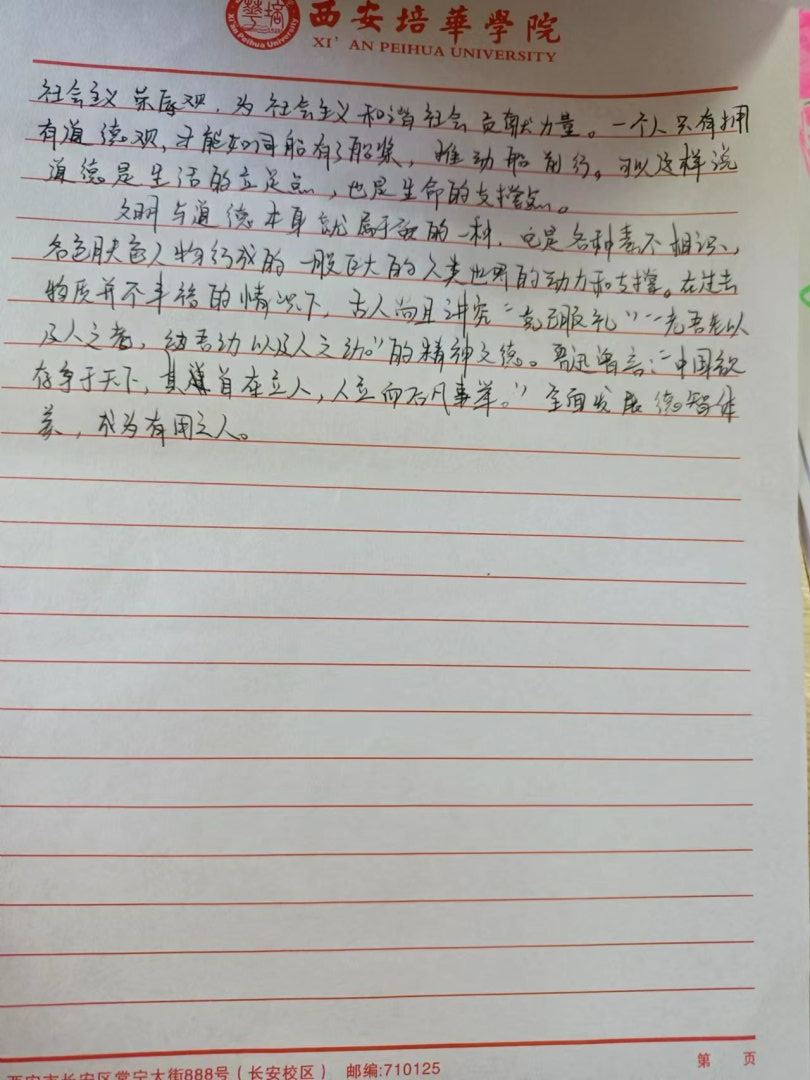 西安培華學院
XI'AN PEIHUA UNIVERSITY
社会主义荣辱观，为社会主义和谐社会贡献力量。一个人只有拥
有道德观，才能如同船有了船桨，推动船前行。可以这样说
道德是生活的立足点，也是生命的支撑点。
文明与道德本身就属于爱的一种，它是各种素不相识、
各色肤色人物形成的一股巨大的人类世界的动力和支撑。在过去
物质并不丰裕的情况下，古人尚且讲究“克己服礼”“老吾老以
及人之老，幼吾幼以及人之幼。”的精神文德。鲁迅曾言：“中国欲
存争于天下，其首在立人，人立而后凡事举。”全面发展德智体
美，成为有用之人。
西安市长安区常宁大街888号（长安校区） 邮编:710125
第 页